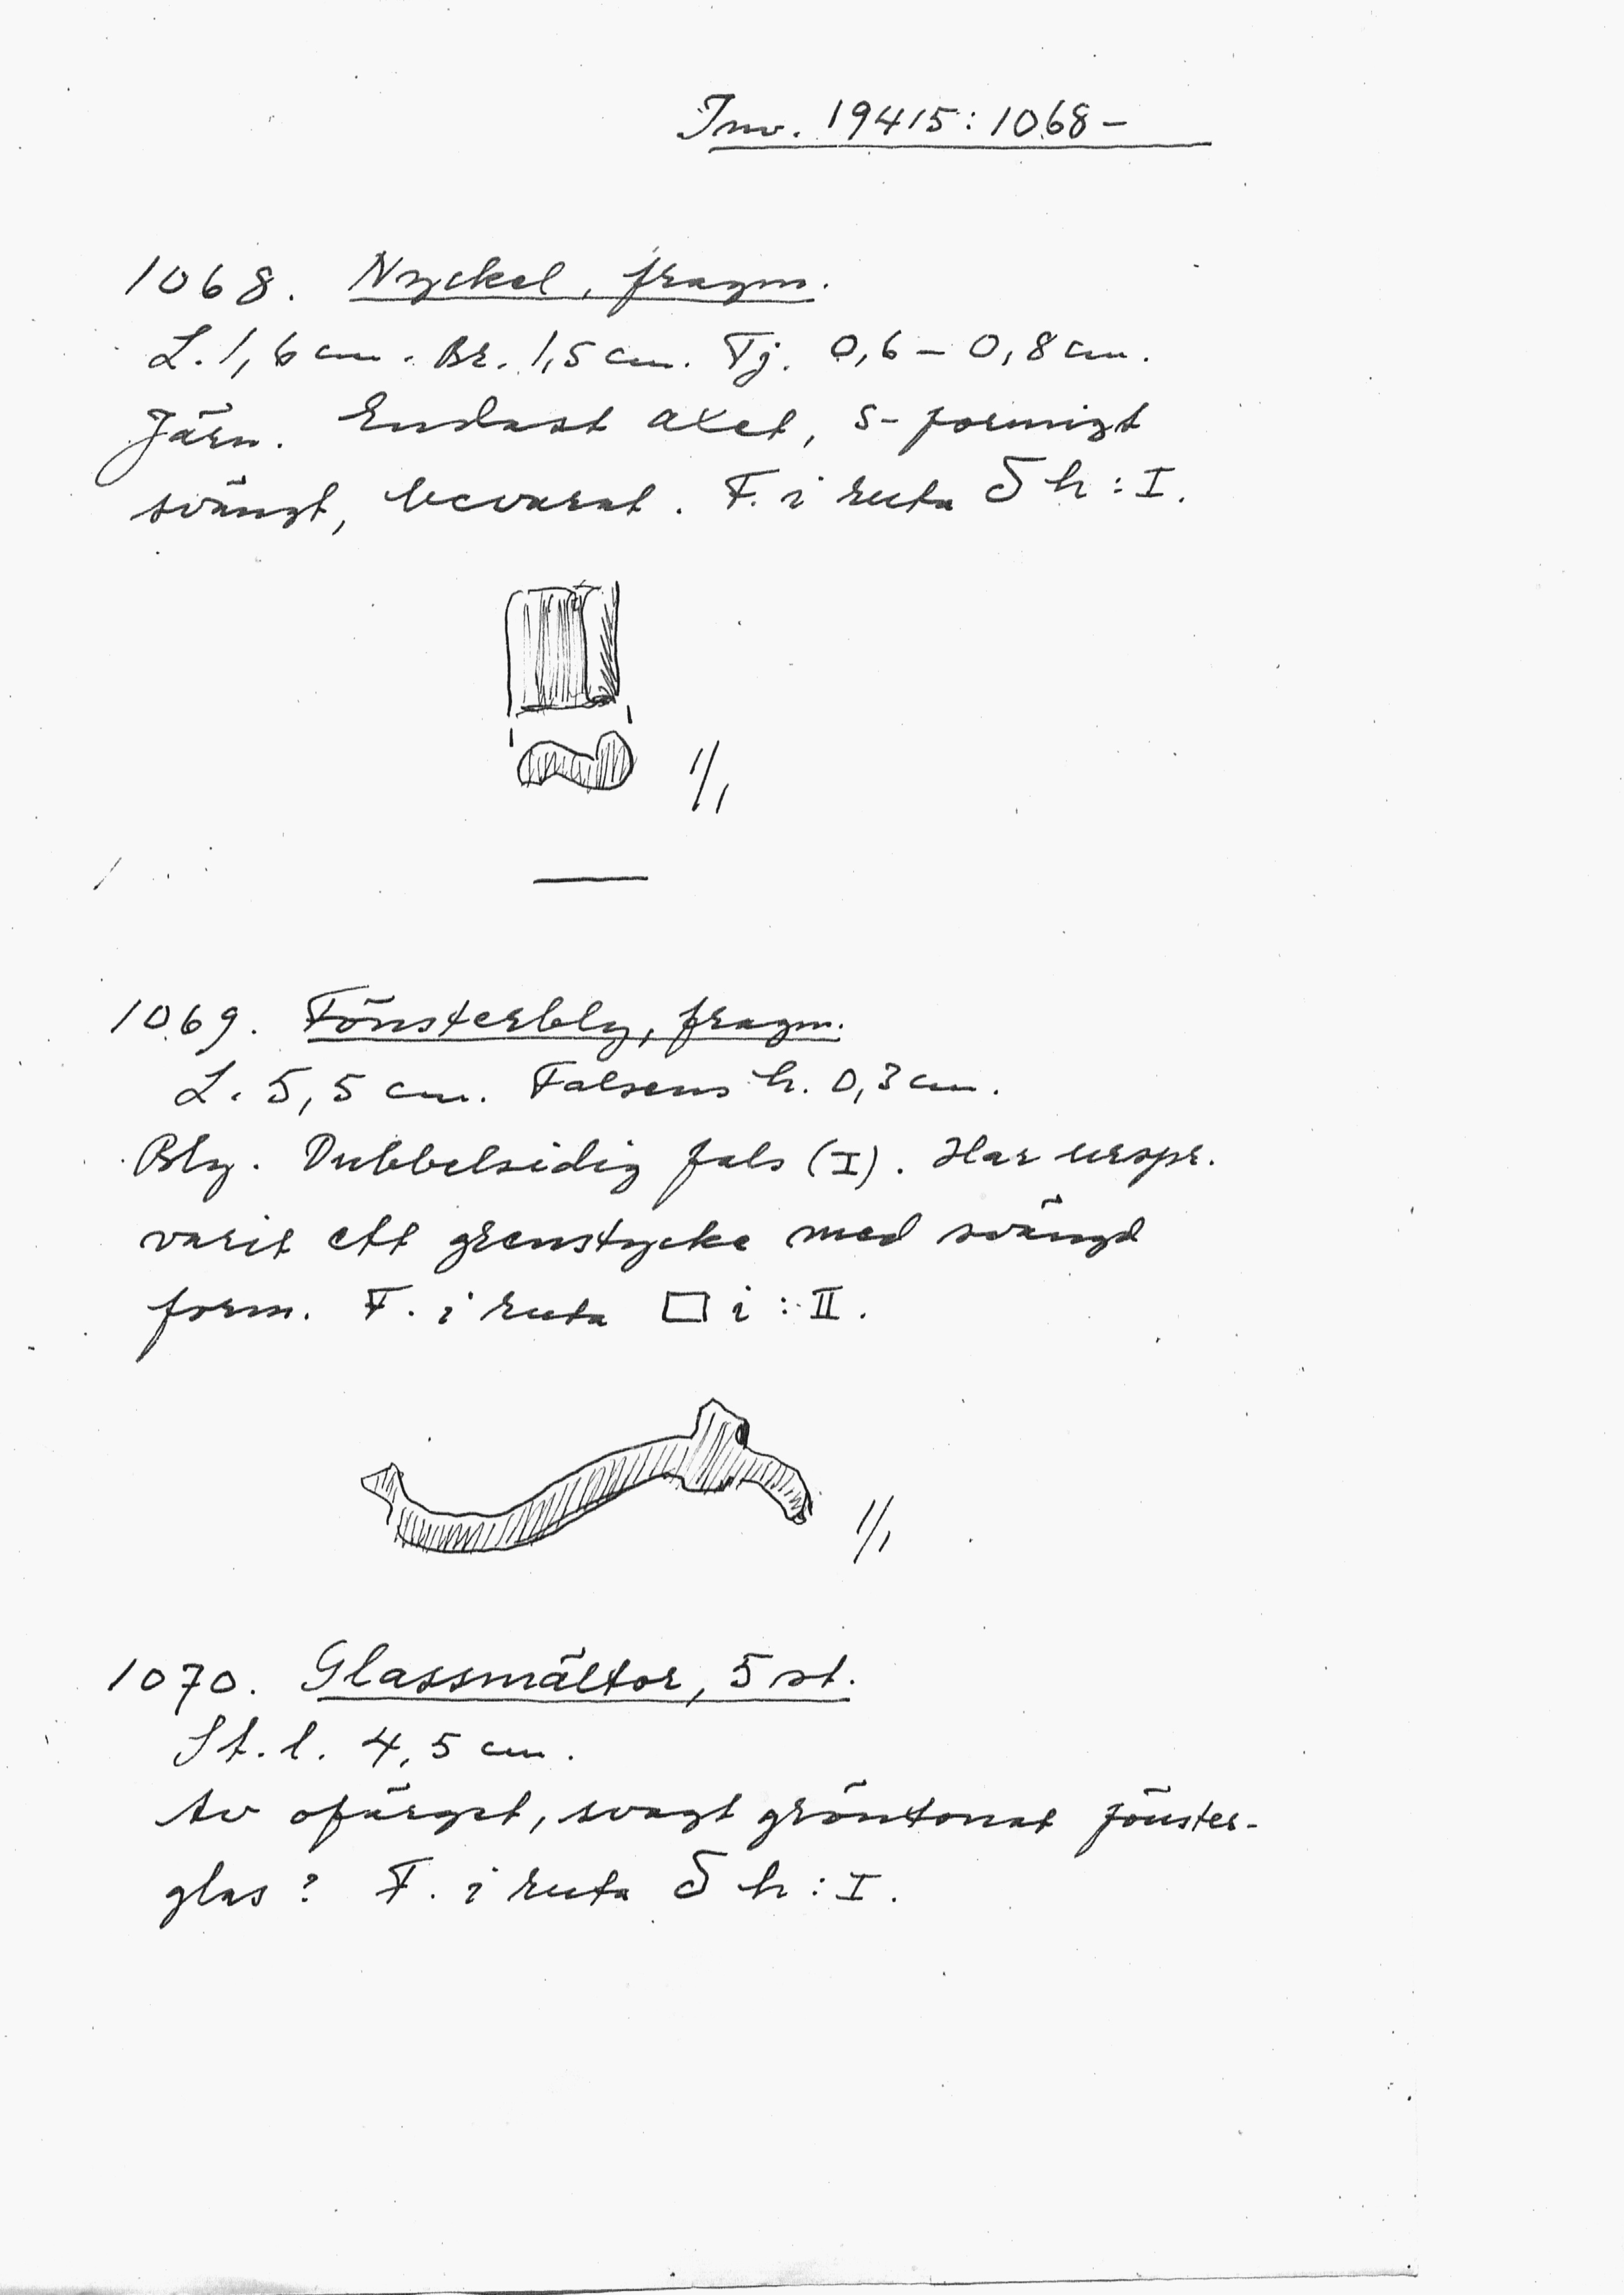 Inv. 19415:1068-
1068. Nyckel, fragm.
L. 1,6 cm. Br. 1,5 cm. Tj. 0,6 – 0,8 cm.
Järn. Endast axet, s-formigt
svängt, bevarat. F. i ruta δ h : I.
1/1
1069. Fönsterbly, fragm.
L. 5,5 cm. Falsens h. 0,3 cm.
Bly. Dubbelsidig fals (I). Har urspr.
varit ett grenstycke med svängd
form. F. i ruta □ i : II.
1/1
1070. Glassmältor, 5 st.
St. l. 4,5 cm.
Av ofärgat, svagt gröntonat fönster-
glas? F. i ruta δ h : I.